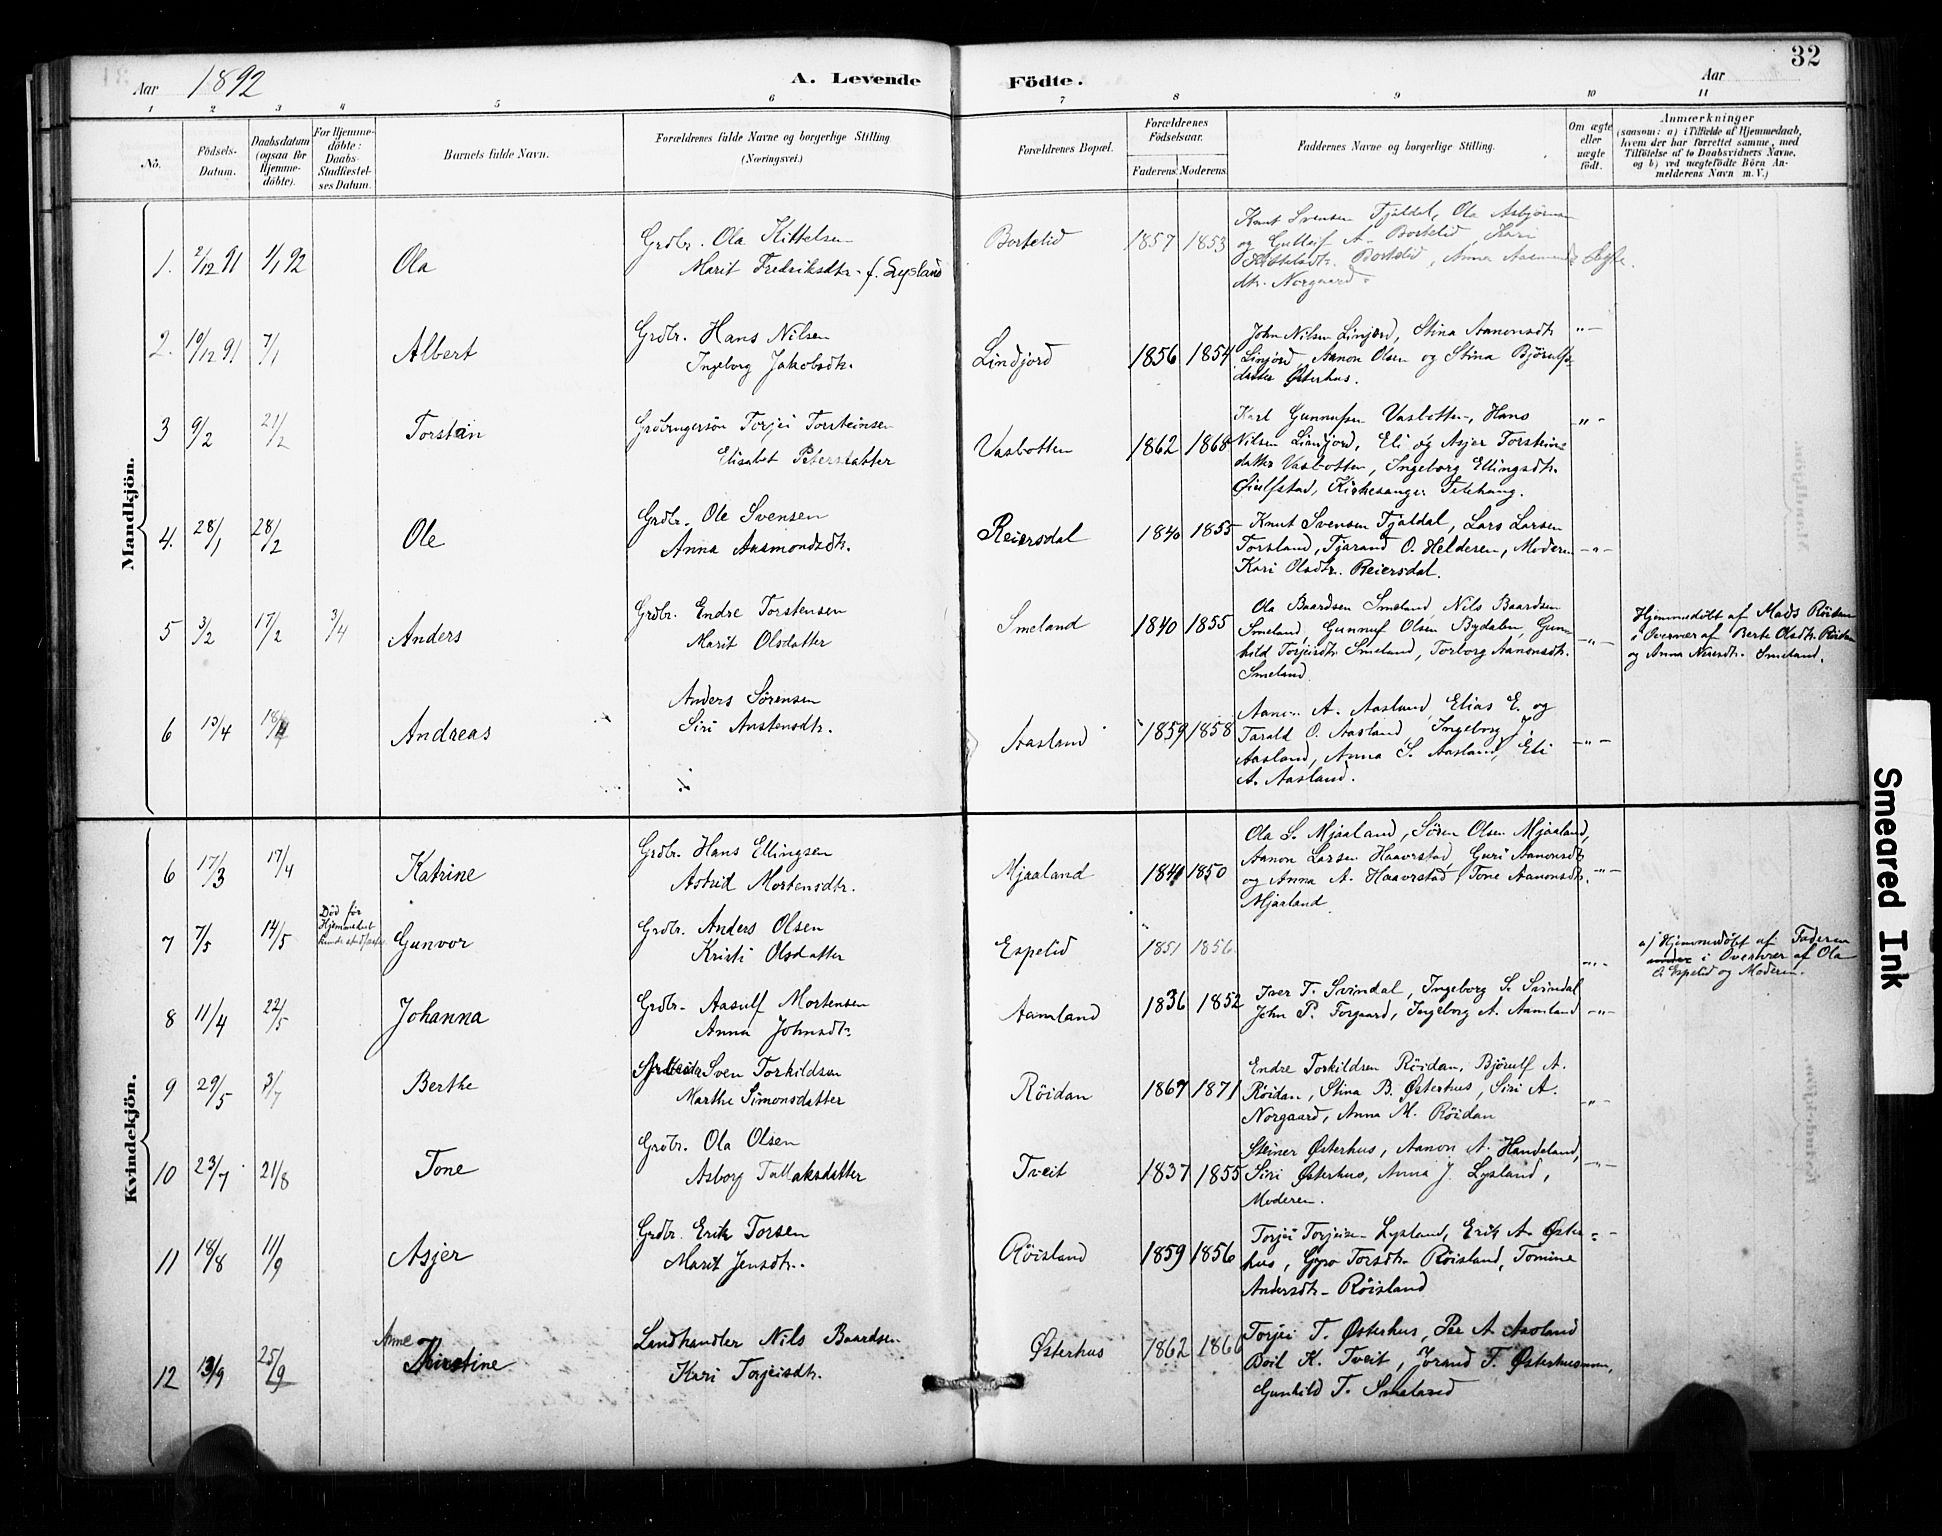 32
Aar 1892 A. Levende Födte. Aar
1 2 3 4 5 6 7 8 9 10 11
No.
Födsels-
Datum.
Daabsdatum
(ogsaa for
Hjemme-
döbte).
For Hjemme-
döbte:
Daabs-
Stadfæstel-
ses Datum.
Barnets fulde Navn.
Forældrenes fulde Navne og borgerlige Stilling
(Næringsvei.)
Forældrenes Bopæl.
Forældrenes
Födselsaar.
Faderens. Moderens.
Faddernes Navne og borgerlige Stilling.
Om ægte
eller
uægte
födt.
Anmærkninger
(saasom: a) i Tilfælde af Hjemmedaab,
hvem der har forrettet samme, med
Tilföielse af to Daabsvidners Navne,
og b) ved uægtefödte Börn An-
melderens Navn m. V.)
Mandkjön.
1. 2/12 91 1/1 92 Ola
Grdbr. Ola Kittelsen
Marit Fredriksdtr. f. Lysland
Bortelid 1857 1853
Knut Svensen Tjaldal, Ola Asbjørnsen
og Gulleif A. Bortelid, Kari
Kittelsdtr. Bortelid, Anna Aasmunds
dtr. Norgaard.
Ægte.
2. 19/12 91 7/1 Albert
Grdbr. Hans Nilsen
Ingeborg Jakobsdtr.
Lindjord 1856 1854
John Nilsen Linjord, Stina Aanonsdtr.
Linjord, Aanon Olsen og Stina Bjørulfs-
datter Østerhus.
" -
3 9/2 21/2 Torstein
Grdbrugersøn Torjei Torsteinsen
Elisabet Petersdatter
Vasbotten 1862 1868
Karl Gunnufsen Vasbotten, Hans
Nilsen Linjord, Eli og Asjer Torsteins-
datter Vasbotten, Ingeborg Ellingsdtr.
Øiulfstad, Kirkesanger Telehaug.
" -
4. 28/1 28/2 Ole
Grdbr. Ole Svensen
Anna Aasmondsdtr.
Reiersdal 1840 1855
Knut Svensen Tjaldal, Lars Larsen
Torsland, Tjarand O. Helderen, Moderen
Kari Olsdtr. Reiersdal.
- " -
5 3/2 17/2 3/4 Anders
Grdbr. Endre Torstensen
Marit Olsdatter
Smeland 1840 1855
Ola Baardsen Smeland, Nils Baardsen
Smeland, Gunnuf Olsen Bydalen, Gun-
hild Torjeisdtr. Smeland, Torborg Aanonsdtr.
Smeland.
- " -
Hjemmedøbt af Mads Röidan
i Overvær af Berte Olsdtr. Röidan
og Anna Nilsdtr. Smeland.
6 13/4 18/4 Andreas
Anders Sørensen
Siri Anstensdtr.
Aasland 1859 1858
Aanon A. Aasland, Elias E. og
Tarald O. Aasland, Ingeborg J.
Aasland, Anna S. Aasland, Eli
A. Aasland.
- " -
Kvindekjön.
6 17/3 17/4 Katrine
Grdbr. Hans Ellingsen
Astrid Mortensdtr.
Mjaaland 1841 1850
Ola S. Mjaaland, Sören Olsen Mjaaland,
Aanon Larsen Haaverstad, Guri Aanonsdtr.
og Anna A. Haaverstad, Tone Aanonsdtr.
Mjaaland.
- " -
7 7/5 14/5
Død før
Hjemmedaab
kunde stadfæstes
Gunvor
Grdbr. Anders Olsen
Kristi Olsdatter
Espelid 1851 1856
- " -
a) Hjemmedøbt af Faderen
i Overvær af Ola
O. Espelid og Moderen.
8 11/4 22/5 Johanna
Grdbr. Aasulf Mortensen
Anna Johnsdtr.
Aamland 1836 1852
Iver T. Svindal, Ingeborg S. Svindal
John P. Forgaard, Ingeborg A. Aamland
- " -
9 29/5 3/7 Berthe
Sven Torkildsen
Marthe Simonsdatter
Röidan 1867 1871
Endre Torkildsen Röidan, Bjørulf A.
Röidan, Stina B. Østerhus, Siri A.
Norgaard, Anna M. Röidan
- " -
10 23/7 21/8 Tone
Grdbr. Ola Olsen
Asborg Tallaksdatter
Tveit 1837 1855
Steiner Østerhus, Aanon A. Handeland,
Siri Østerhus, Anna J. Lysland,
Moderen.
- " -
11 18/8 11/9 Asjer
Grdbr. Erik Torsen
Marit Jensdtr.
Röisland 1859 1856
Torjei Torjeisen Lysland, Erik A. Øster-
hus, Gyro Torsdtr. Röisland, Tomine
Andersdtr. Röisland
" -
12 13/9 25/9 Anne Kirstine
Landhandler Nils Baardsen
Kari Torjeisdtr.
Østerhus 1862 1866
Torjei T. Østerhus, Per A. Aasland
Boil K. Tveit, Jorand T. Østerhus
Gunhild T. Smeland
Smeared Ink